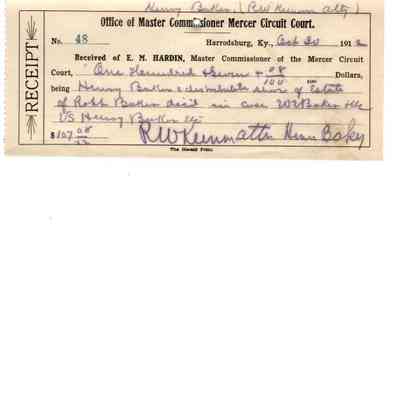 Henry Baker, (R W Keenon atty)
Office of Master Commissioner Mercer Circuit Court.
No. 48 Harrodsburg, Ky., Oct 30 1912
Received of E. M. HARDIN, Master Commissioner of the Mercer Circuit
Court, One Hundred & Seven & 08/100 Dollars,
being Henry Bakers distributable share of Estate
of Robt Baker dec'd in case W Baker
VS Henry Baker
$107 08
R W Keenon atty Henry Baker
RECEIPT
The Herald Print